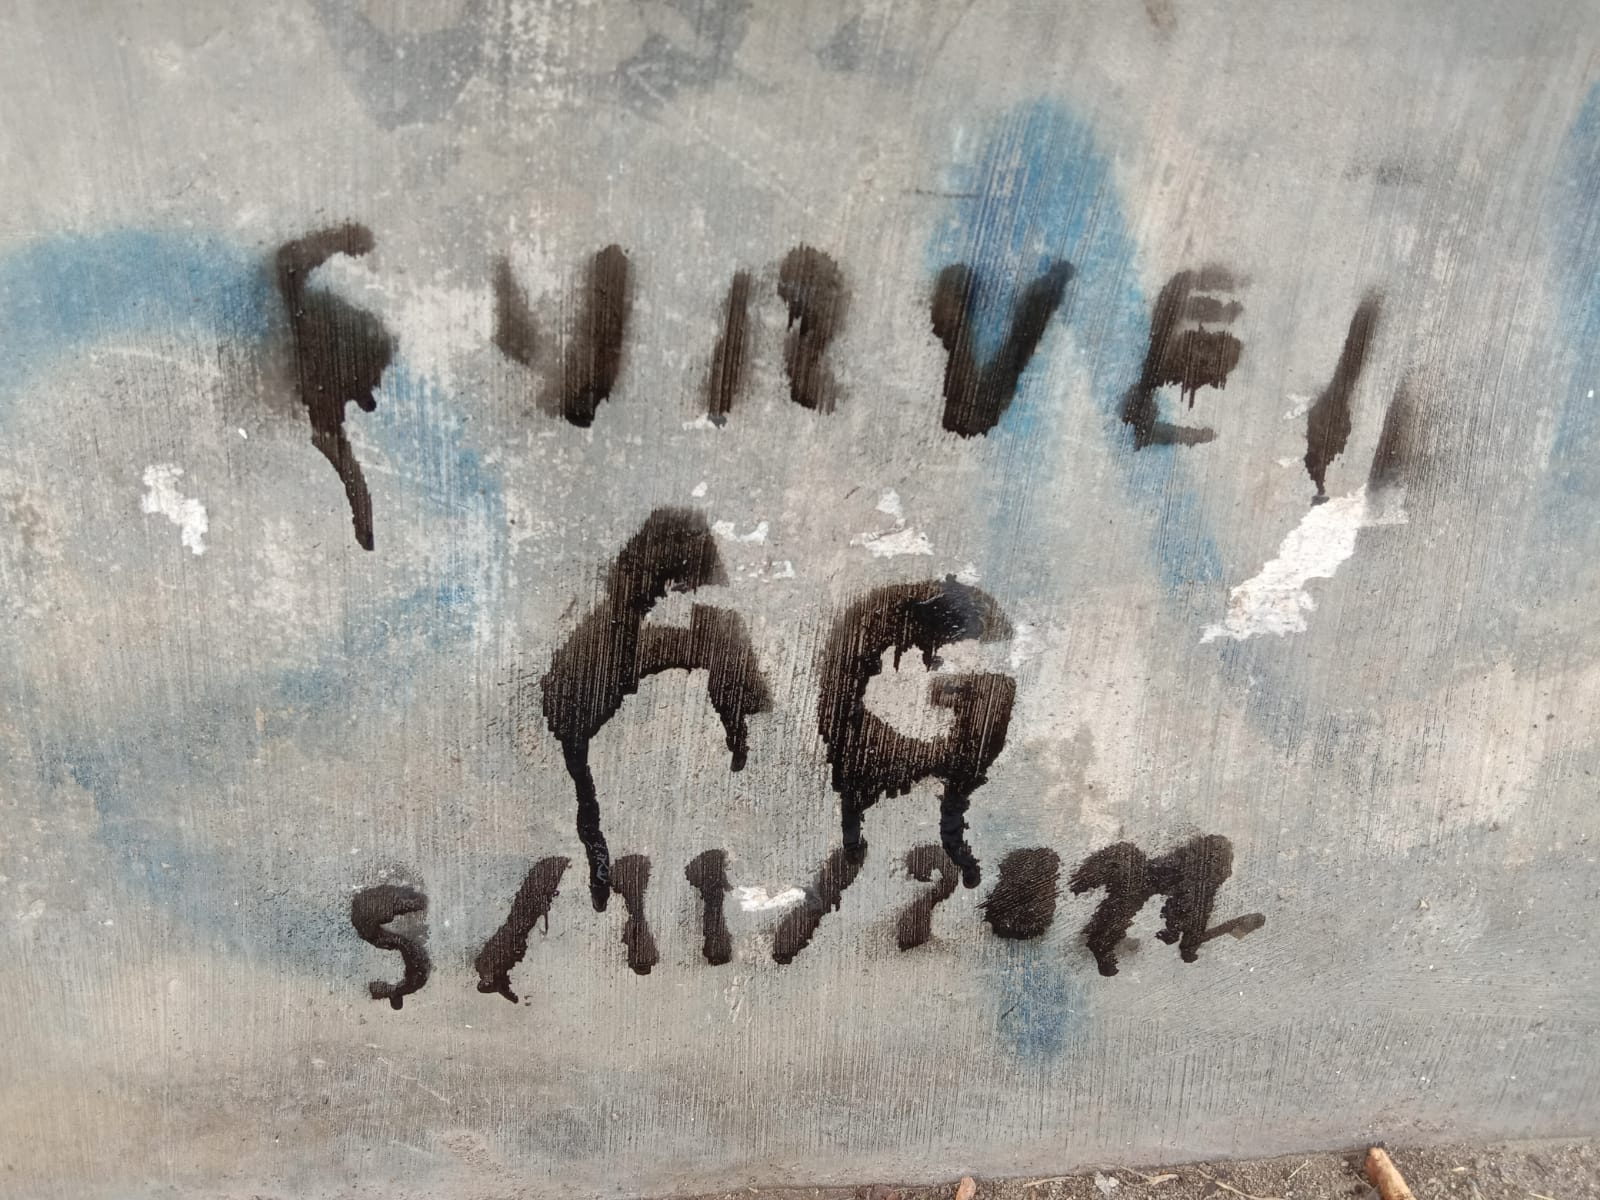 SURVEI
AG
5/11/2022